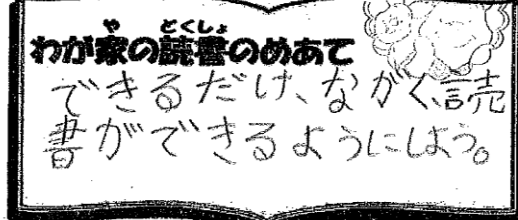 わが家の読書のめあて
できるだけ、ながく、読
書ができるようにしよう。